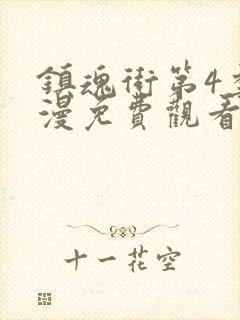 鎮魂街第4季
漫免費觀看
十一花空